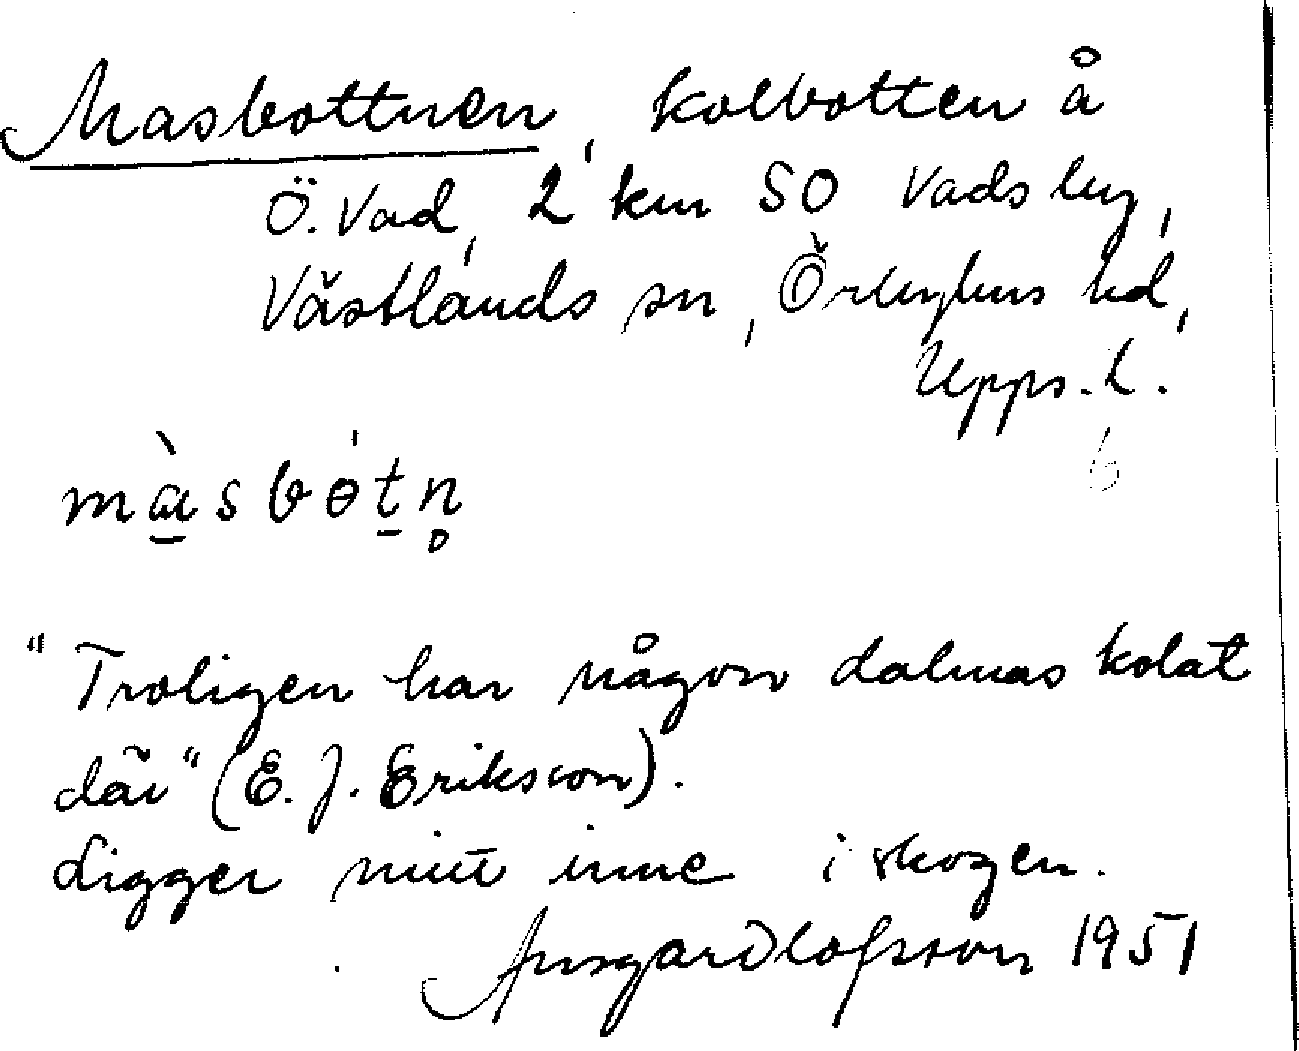 Masbottnen, kolbotten å
Ö. Vad, 2 km SO Vads by,
Västlands sn, Örbyhus hd,
Upps. L.
6
mà̱sbòṯn̥
"Troligen har någon dalmas kolat
där" (E. J. Eriksson).
Ligger mitt inne i skogen.
Ansgar Olofsson 1951